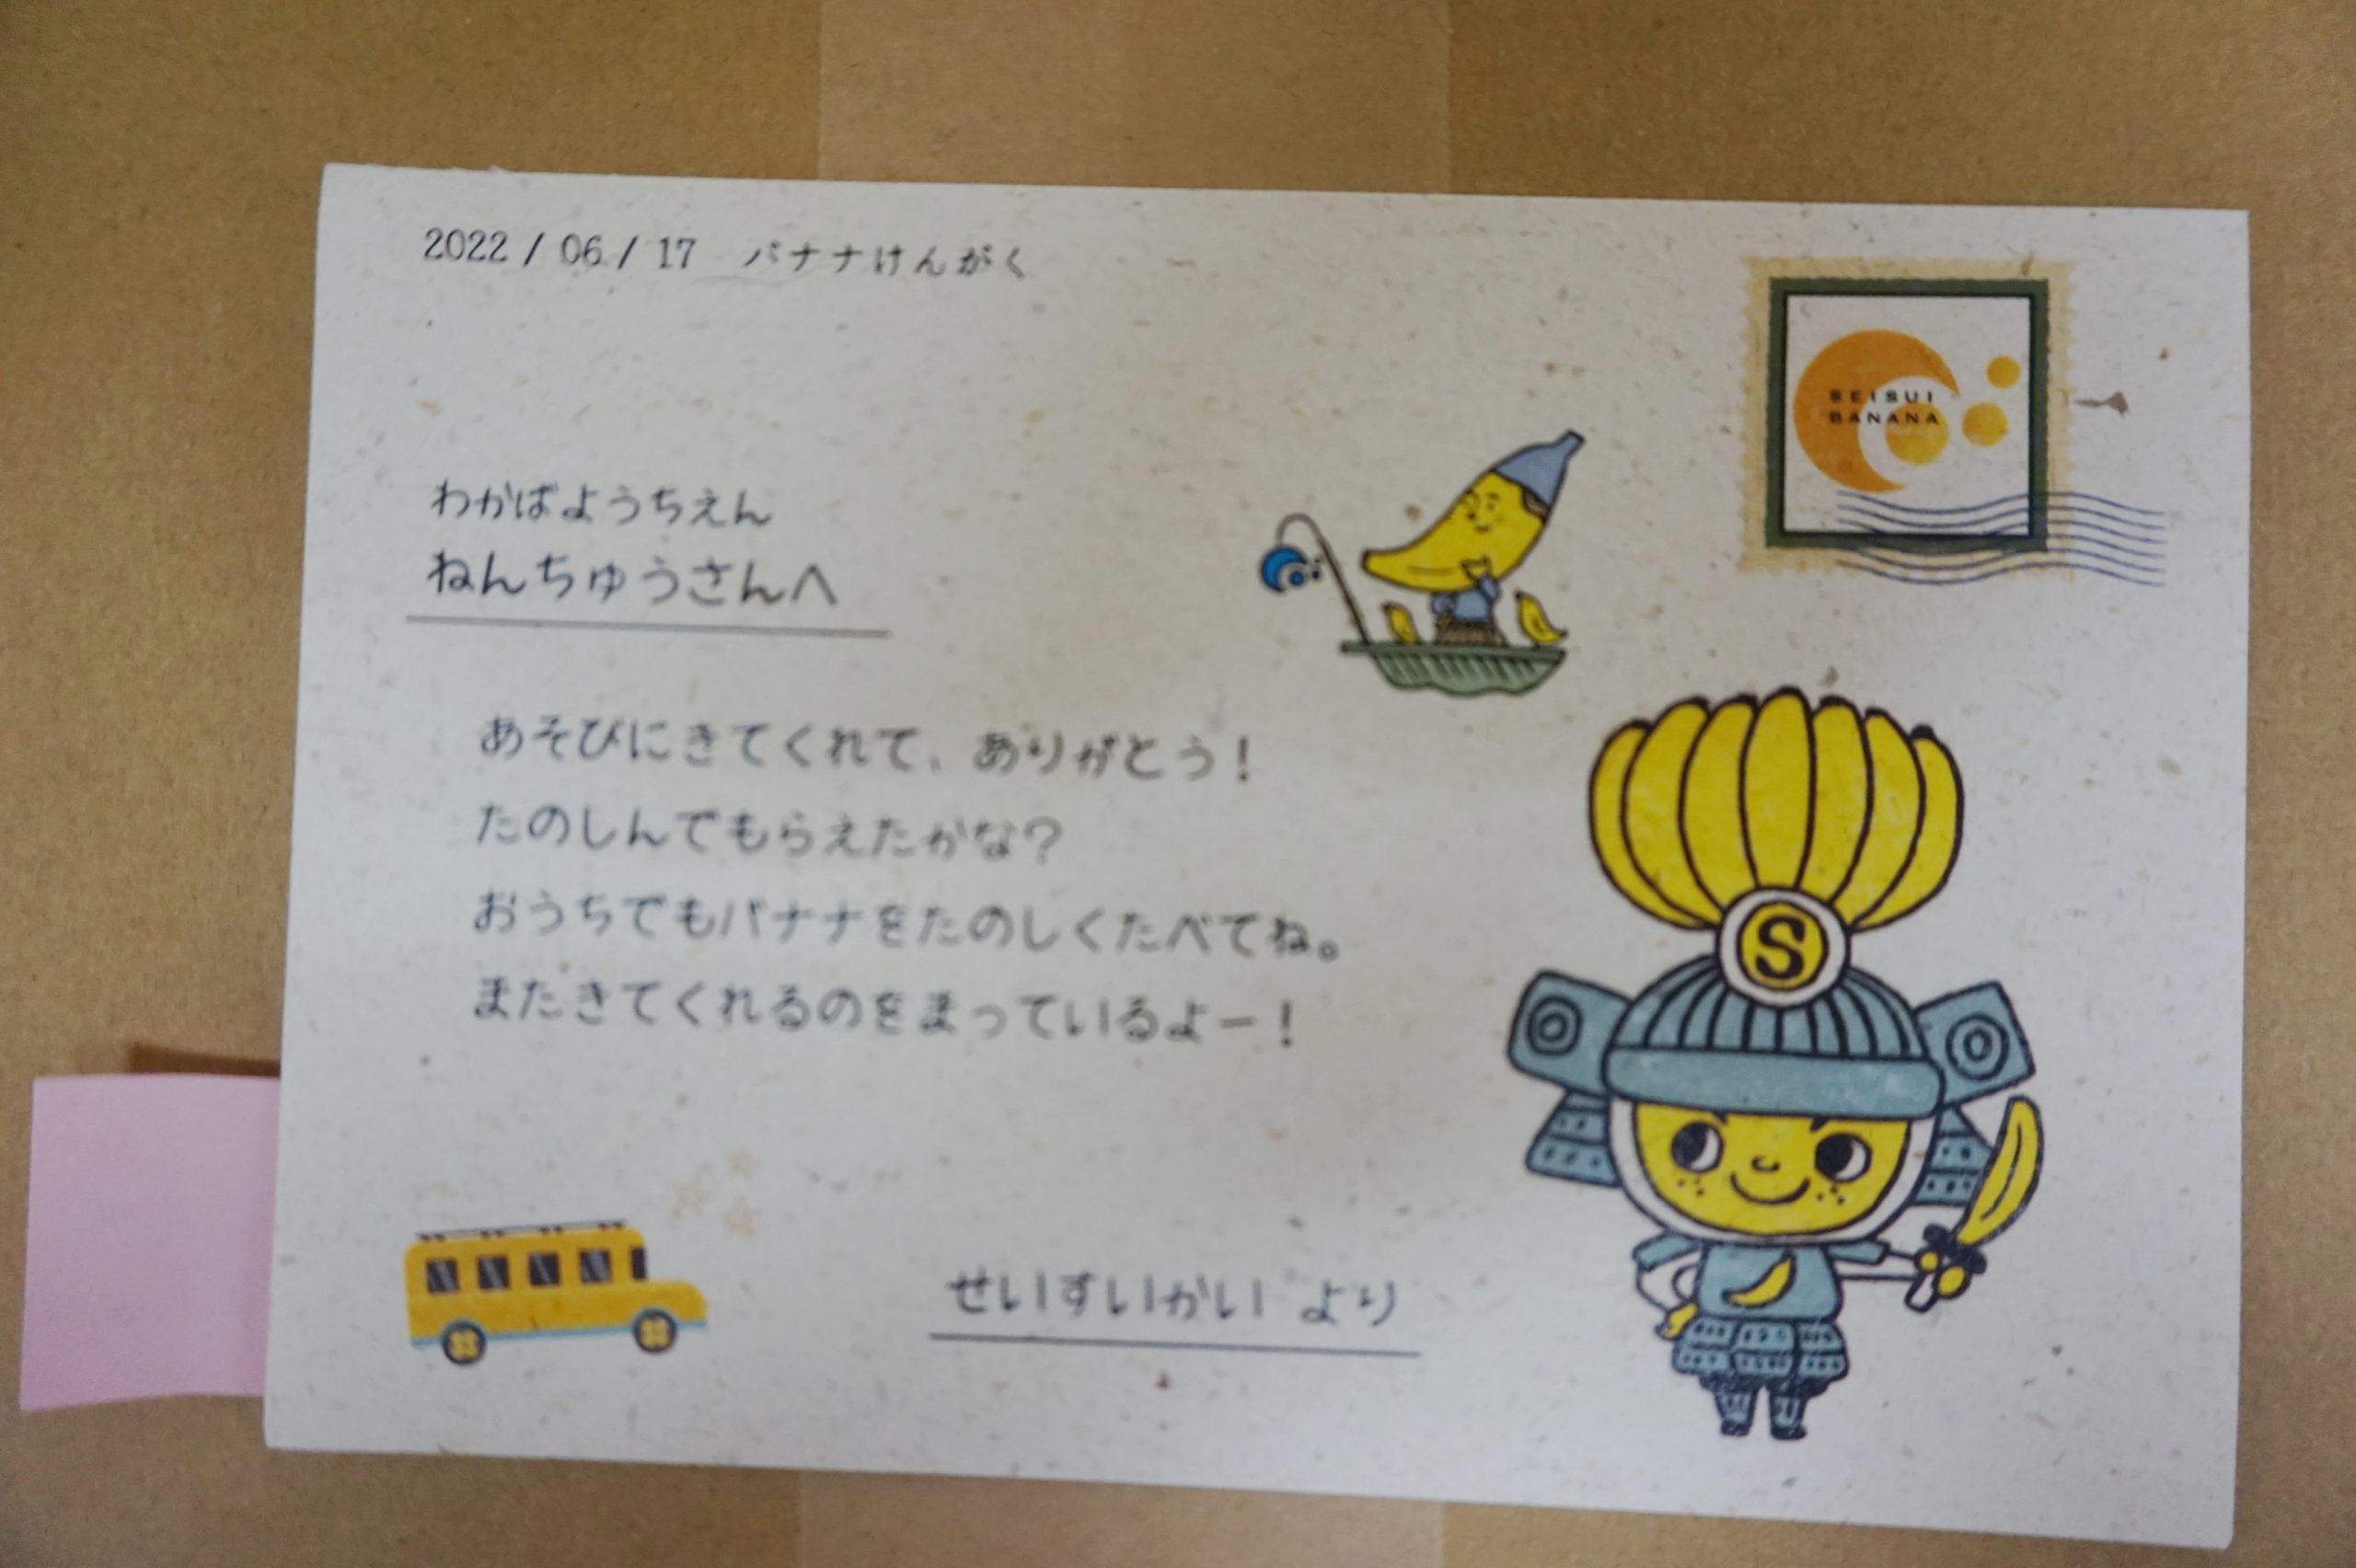 2022 / 06 / 17 バナナけんがく
SEISUI
BANANA
わかばようちえん
ねんちゅうさんへ
あそびにきてくれて、ありがとう！
たのしんでもらえたかな？
おうちでもバナナをたのしくたべてね。
またきてくれるのをまっているよー！
S
せいすいかい より